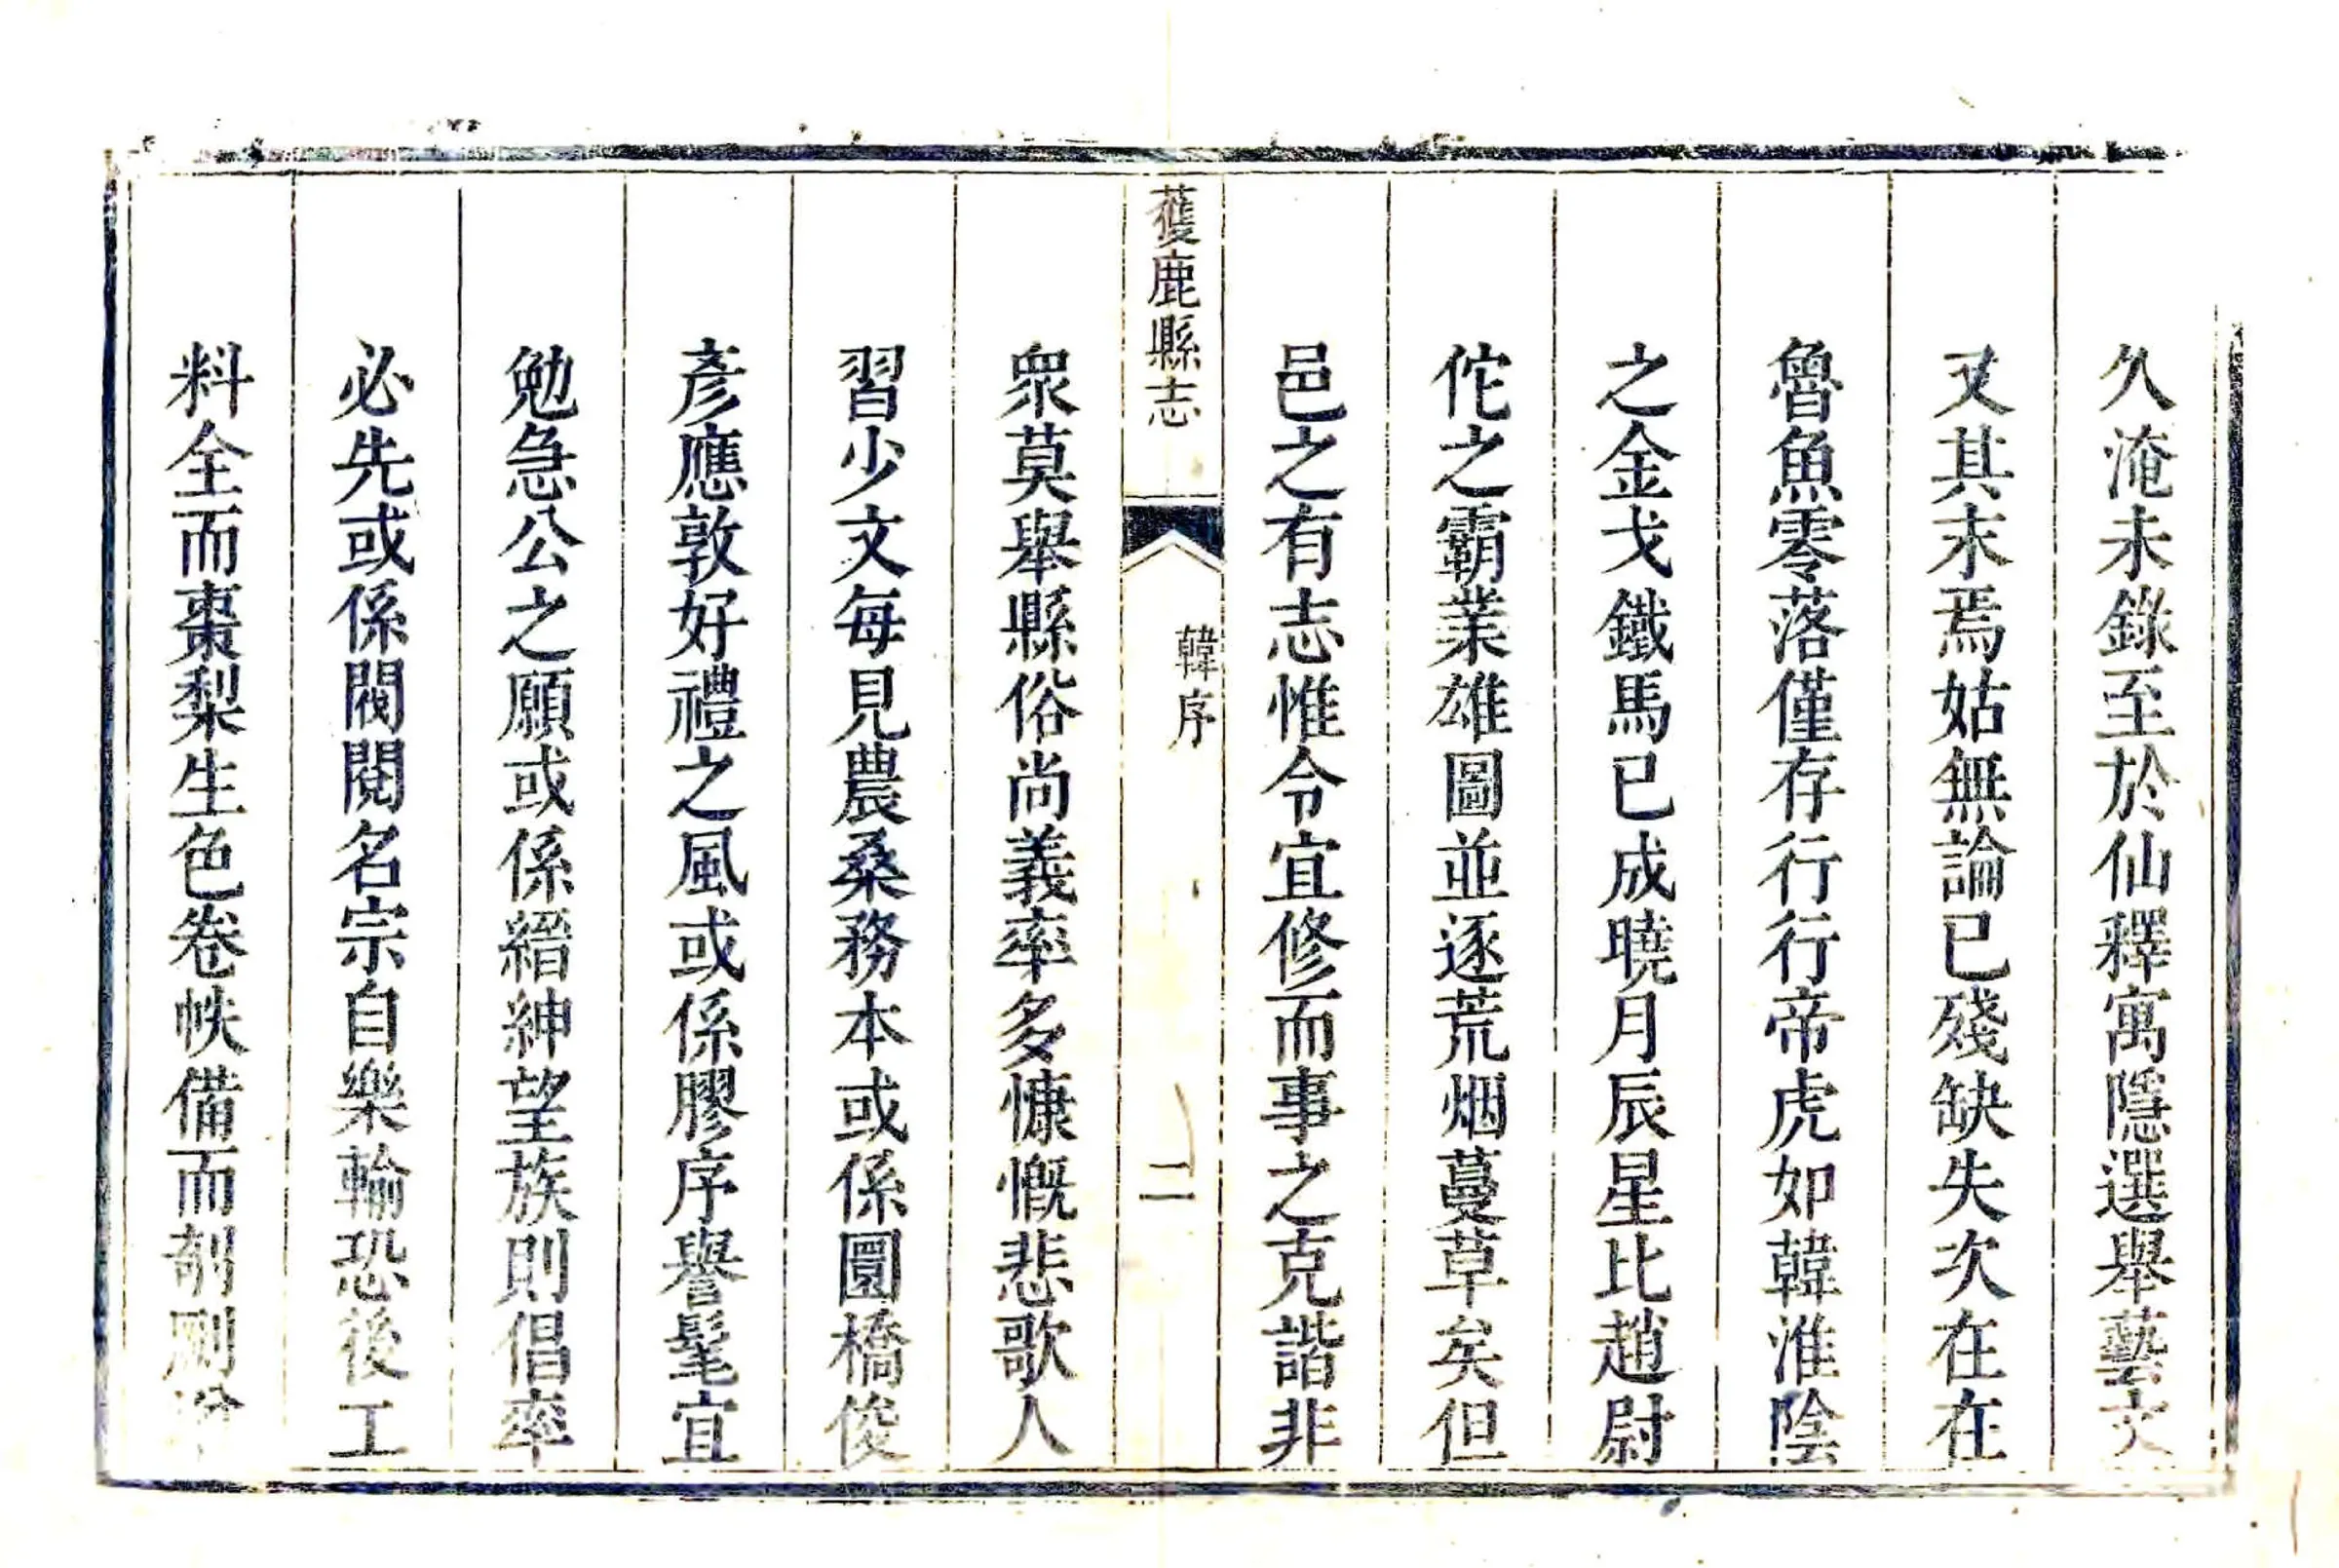 久淹未錄至於仙釋寓隱選舉藝文
又其末焉姑無論已殘缺失次在在
魯魚零落僅存行行帝虎如韓淮陰
之金戈鐵馬已成曉月辰星比趙尉
佗之霸業雄圖並逐荒烟蔓草矣但
邑之有志惟令宜修而事之克諧非
獲鹿縣志
韓序
二
衆莫舉縣俗尚義率多慷慨悲歌人
習少文每見農桑務本或係圜橋俊
彥應敦好禮之風或係膠序譽髦宜
勉急公之願或係縉紳望族則倡率
必先或係閥閱名宗自樂輸恐後工
料全而棗梨生色卷帙備而剞劂